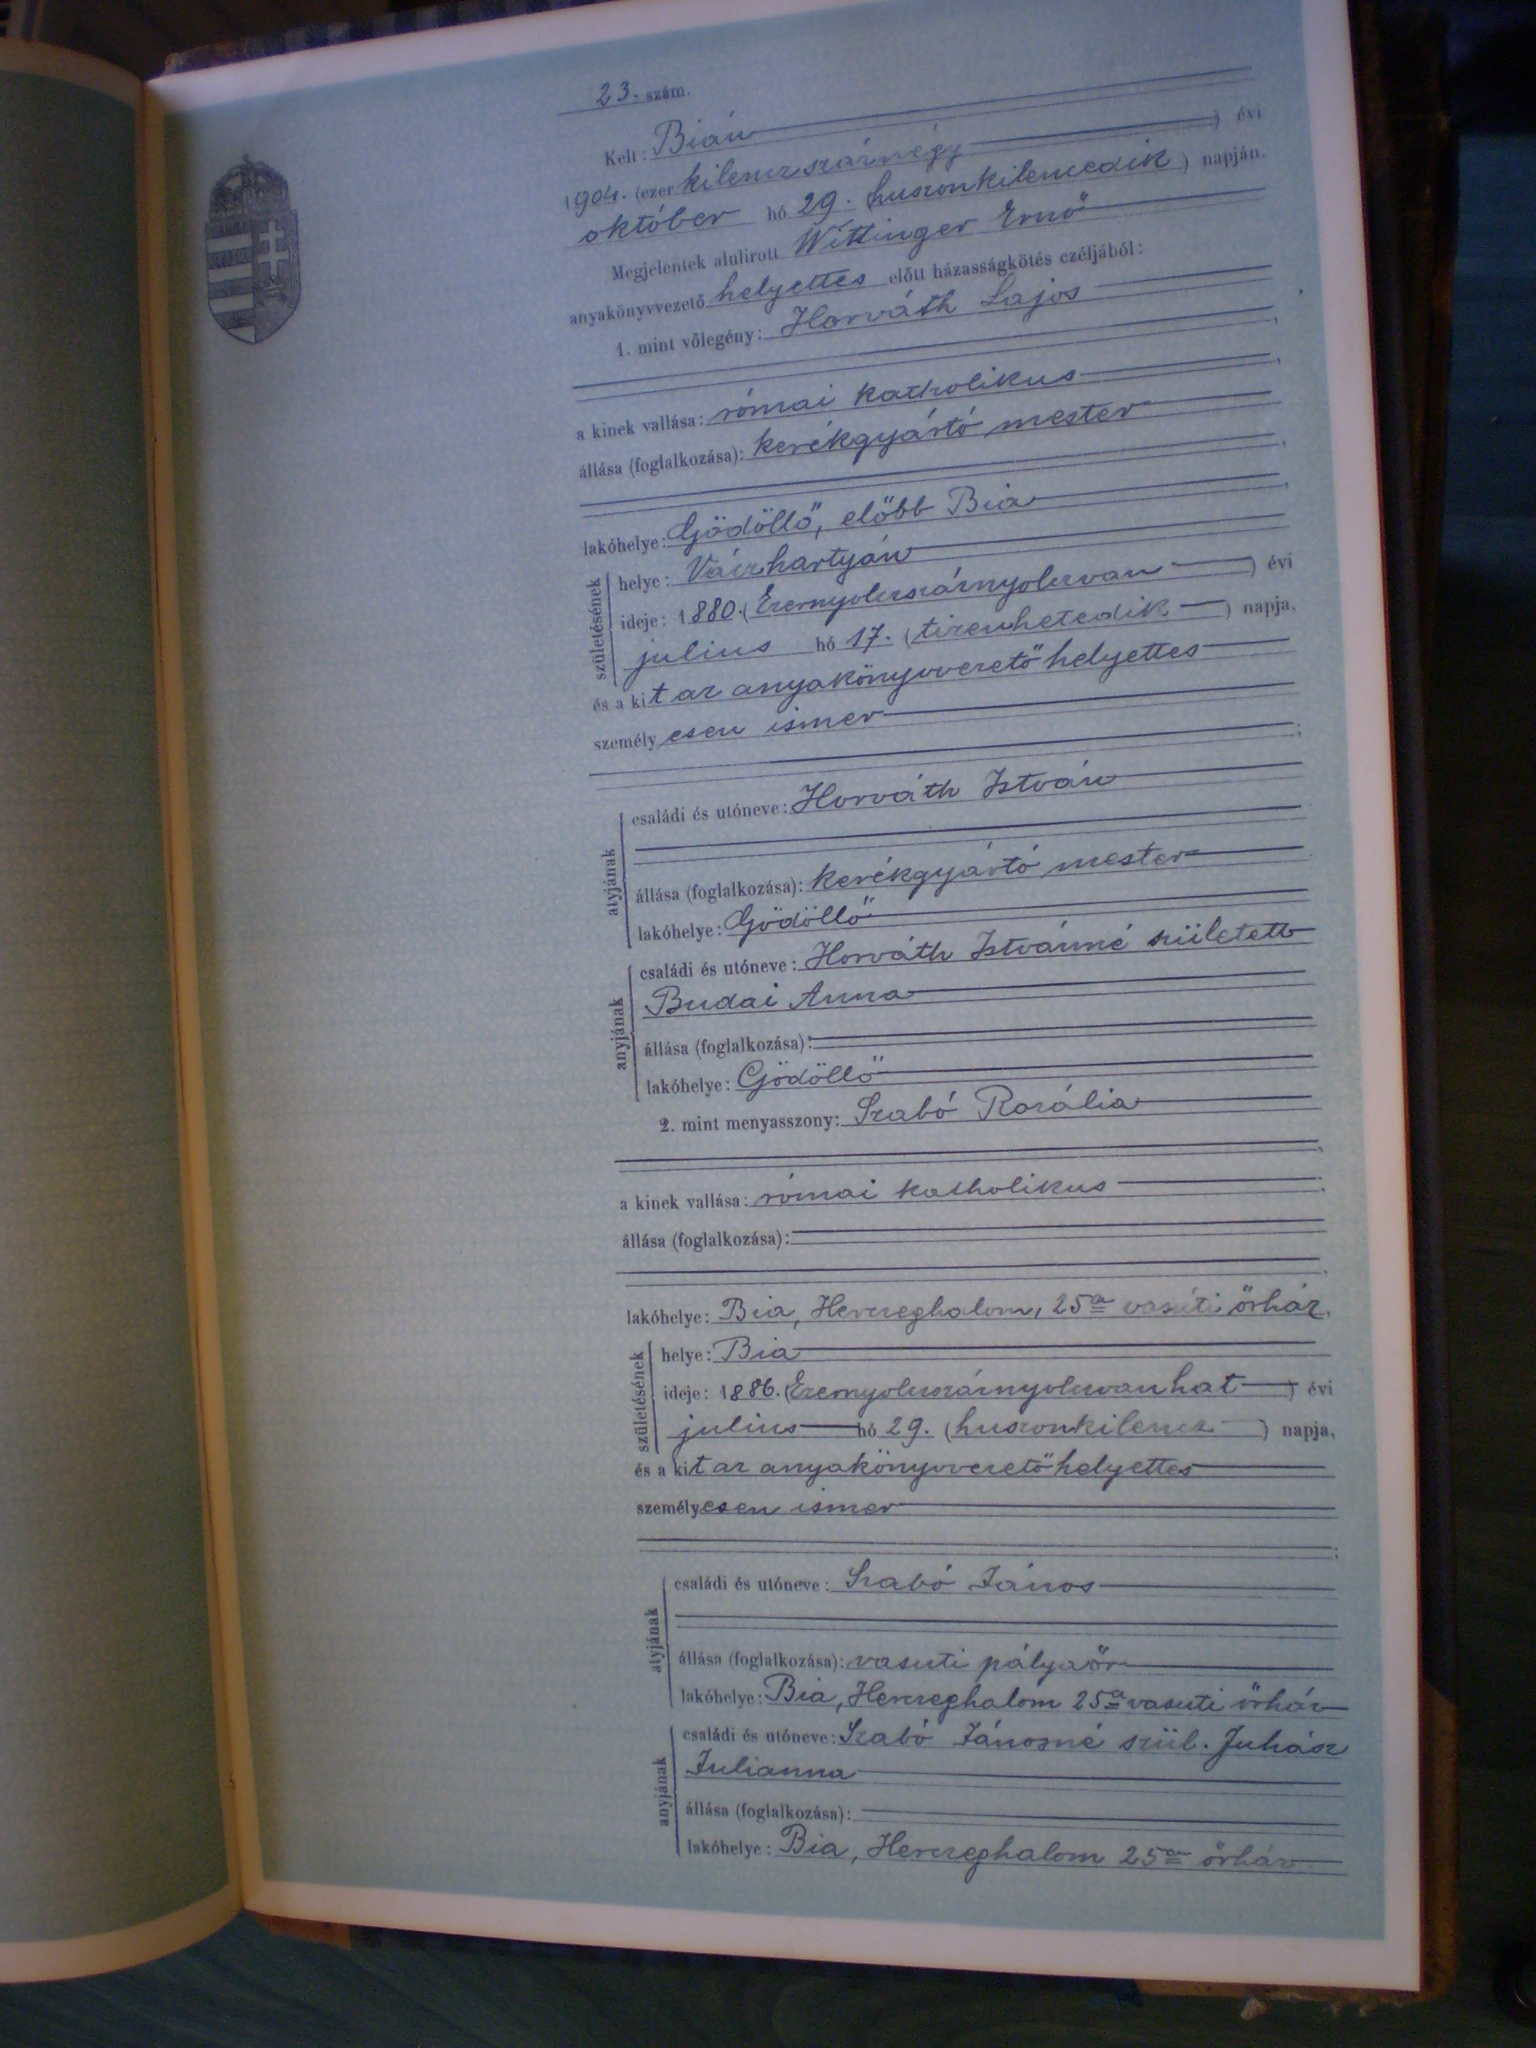 23. szám.
Kelt: Bián
1904. (ezer kilenczszáznégy) évi
október hó 29. huszonkilencedik) napján.
Megjelentek alulirott Wittinger Ernő
anyakönyvvezető helyettes előtt házasságkötés czéljából:
1. mint vőlegény: Horváth Lajos
a kinek vallása: római katholikus
állása (foglalkozása): kerékgyártó mester
lakóhelye: Gödöllő, előbb Bia
születésének
helye: Vácshartyán
ideje: 1880. (Ezernyolczszáznyolczvan) évi
julius hó 17. (tizenhetedik) napja,
és a kit az anyakönyvvezető helyettes
személyesen ismer
atyjának
családi és utóneve: Horváth István
állása (foglalkozása): kerékgyártó mester
lakóhelye: Gödöllő
anyjának
családi és utóneve: Horváth Istvánné született
Budai Anna
állása (foglalkozása):
lakóhelye: Gödöllő
2. mint menyasszony: Szabó Rozália
a kinek vallása: római katholikus
állása (foglalkozása):
lakóhelye: Bia, Herczeghalom, 25a vasúti őrház,
születésének
helye: Bia
ideje: 1886. (Ezernyolczszáznyolczvanhat) évi
julius hó 29. (huszonkilencz) napja,
és a kit az anyakönyvvezető helyettes
személyesen ismer
atyjának
családi és utóneve: Szabó János
állása (foglalkozása): vasuti pályaőr
lakóhelye: Bia, Herczeghalom 25a vasuti őrház
anyjának
családi és utóneve: Szabó Jánosné szül. Juhász
Julianna
állása (foglalkozása):
lakóhelye: Bia, Herczeghalom 25a őrház